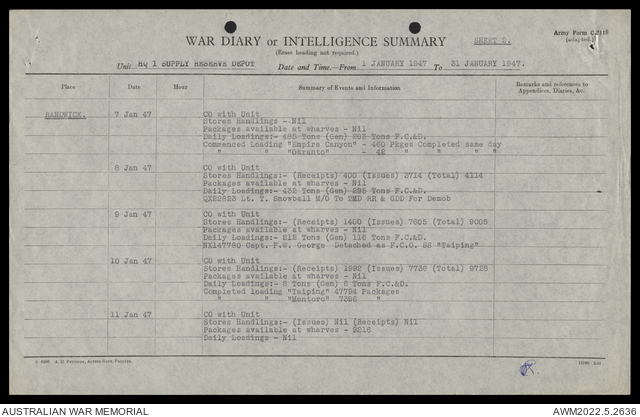 WAR DIARY or INTELLIGENCE SUMMARY
(Erase heading not required).
SHEET 2.
Army Form C.2118
(adapted.)
Unit HQ 1 SUPPLY RESERVE DEPOT Date and Time.—From 1 JANUARY 1947 To 31 JANUARY 1947.
Place Date Summary of Events and Information Remarks and references to Appendices, Diaries, &c.
RANDWICK. 7 Jan 47 CO with Unit
Stores Handlings - Nil
Packages available at wharves - Nil
Daily Loadings:- 485 Tons (Gen) 293 Tons F.C.&D.
Commenced Loading "Empire Canyon" - 460 Pkges Completed same day
" " "Otranto" - 42 " " " "
8 Jan 47 CO with Unit
Stores Handlings:- (Receipts) 400 (Issues) 3714 (Total) 4114
Packages available at wharves - Nil
Daily Loadings:- 432 Tons (Gen) 295 Tons F.C.&D.
QX22823 Lt. T. Snowball M/O To 2MD RR & GDD For Demob
9 Jan 47 CO with Unit
Stores Handlings:- (Receipts) 1400 (Issues) 7605 (Total) 9005
Packages available at wharves - Nil
Daily Loadings:- 212 Tons (Gen) 116 Tons F.C.&D.
NX147780 Capt. F.W. George Detached as F.C.O. SS "Taiping"
10 Jan 47 CO with Unit
Stores Handlings:- (Receipts) 1992 (Issues) 7736 (Total) 9728
Packages available at wharves - Nil
Daily Loadings:- 8 Tons (Gen) 8 Tons F.C.&D.
Completed loading "Taiping" 47794 Packages
" " "Mantoro" 7386 "
11 Jan 47 CO with Unit
Stores Handlings:- (Issues) Nil (Receipts) Nil
Packages available at wharves - 2216
Daily Loadings - Nil
AUSTRALIAN WAR MEMORIAL
AWM2022.5.2636